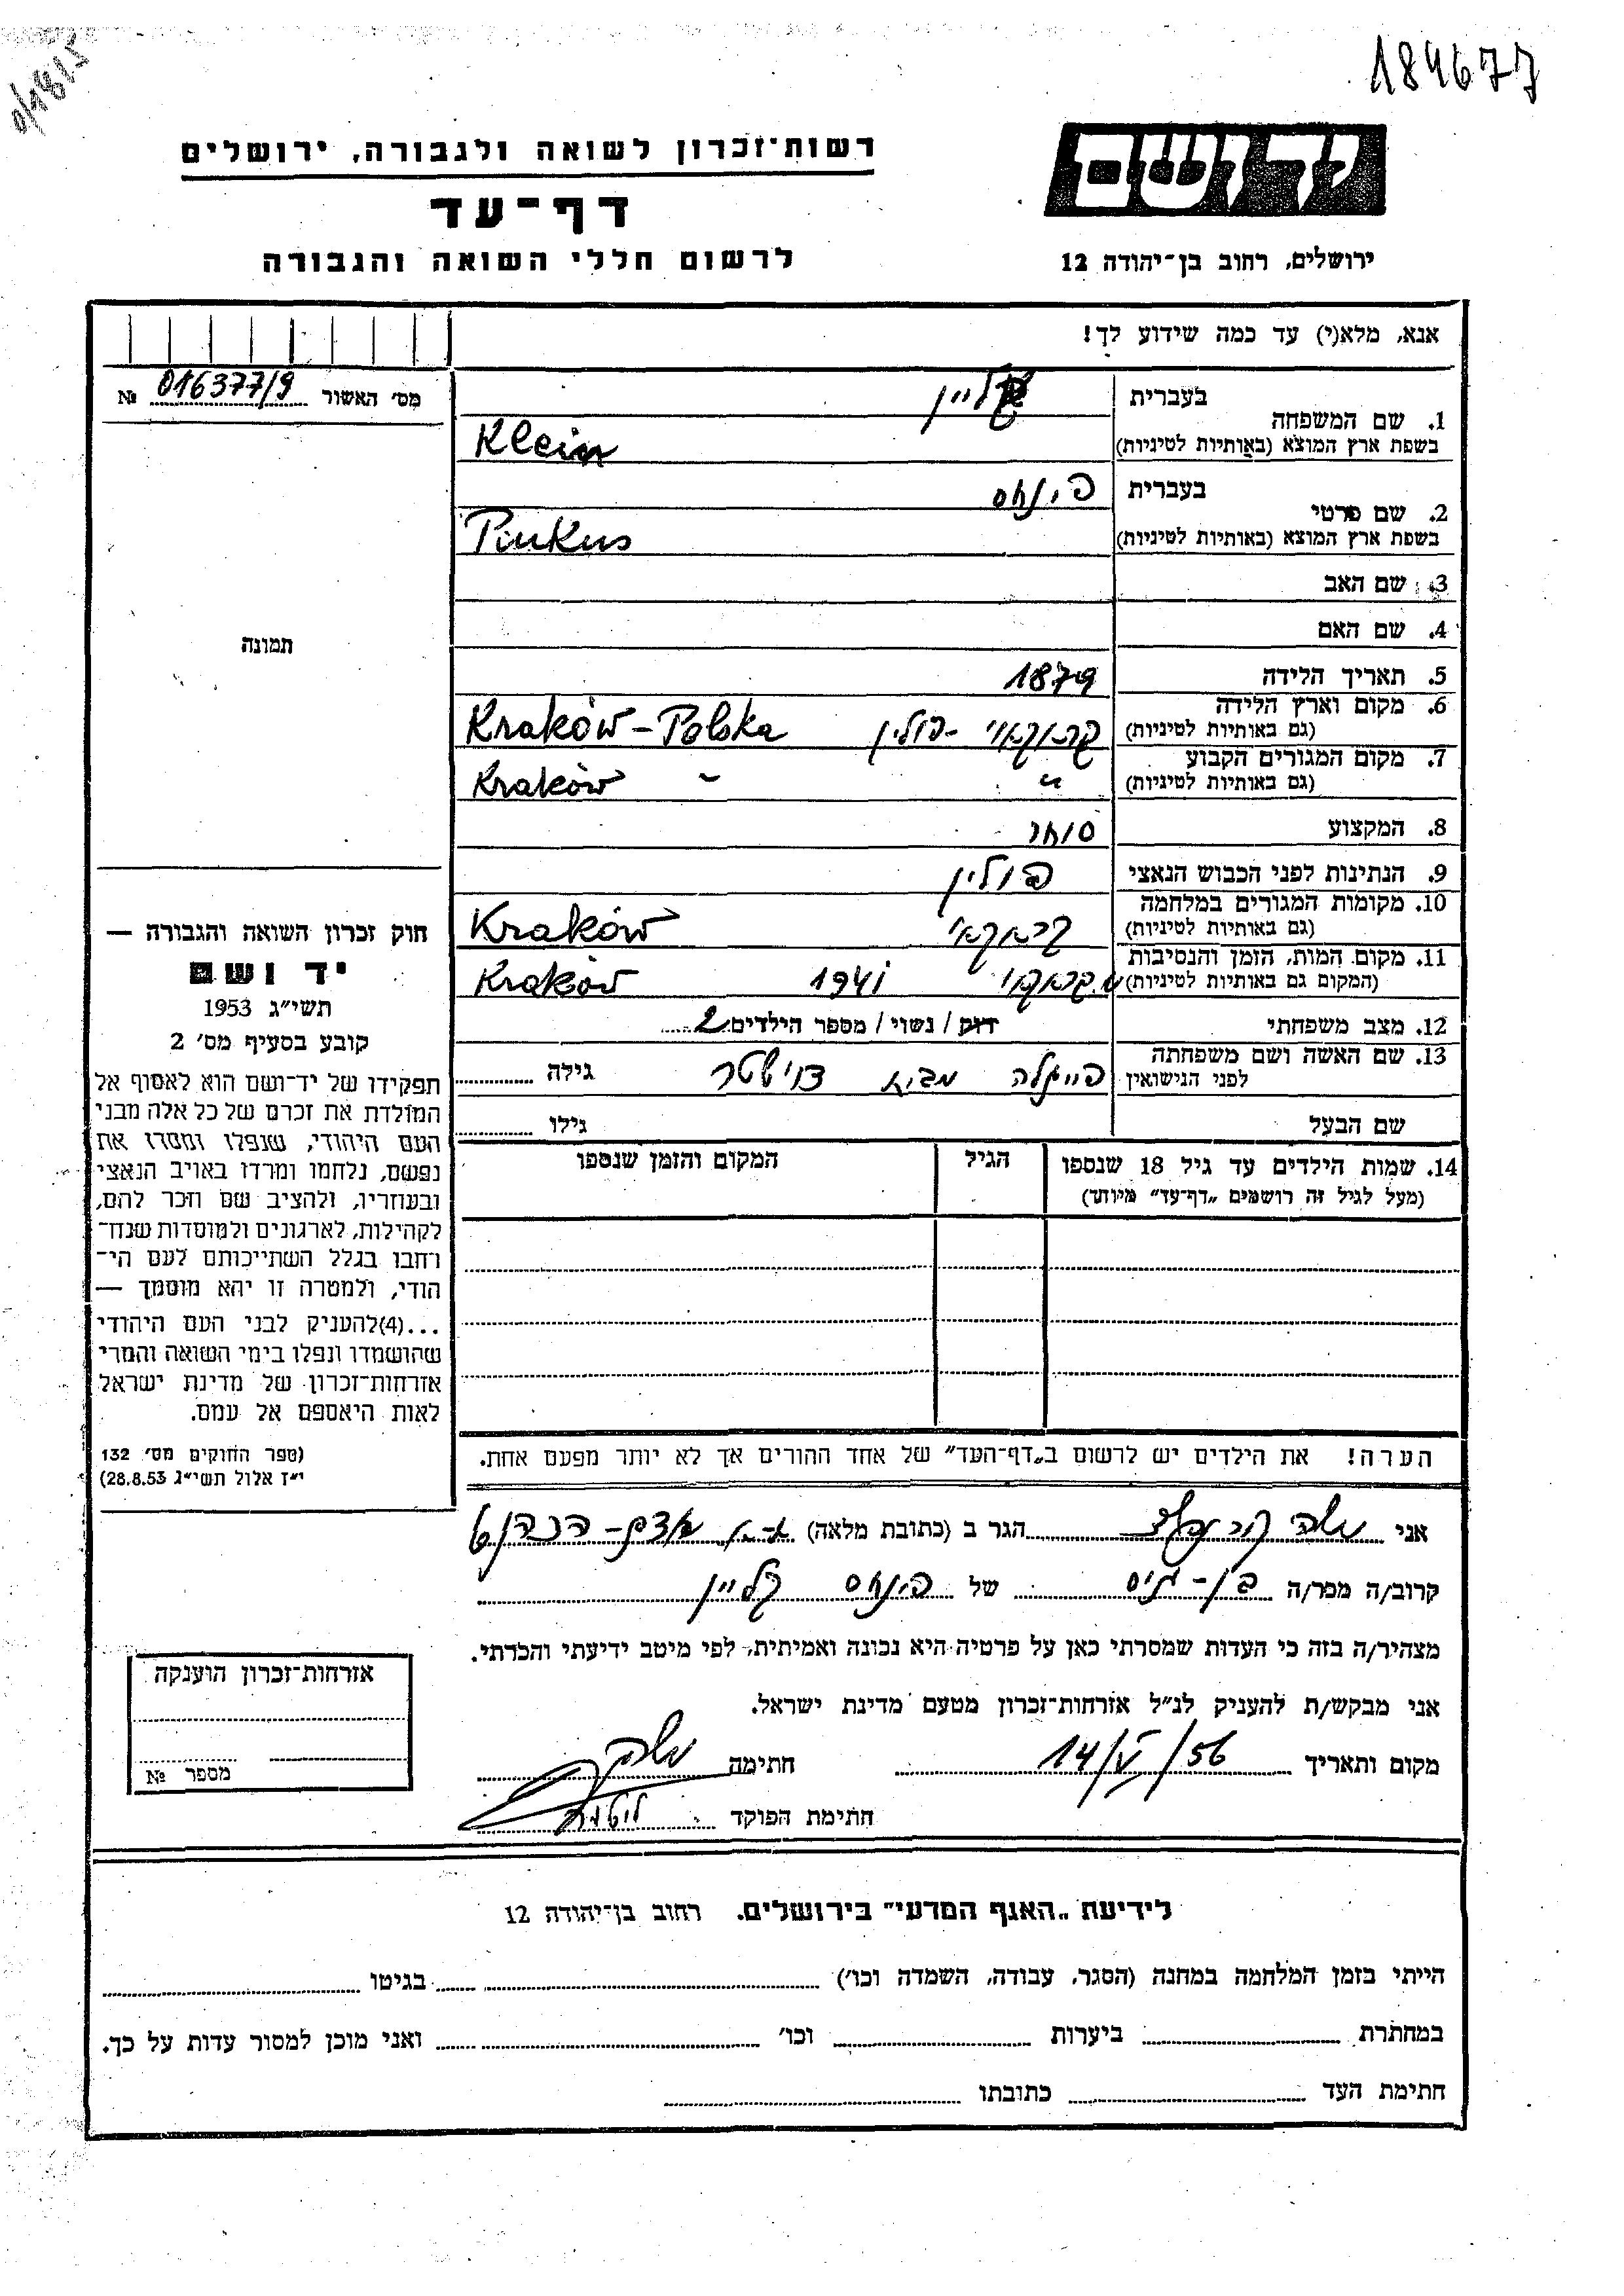 184677
רשות־זכרון לשואה ולגבורה, ירושלים
יד ושם
דף־עד
לרשום חללי השואה והגבורה
ירושלים, רחוב בן־יהודה 12
אנא, מלא(י) עד כמה שידוע לך!
מס׳ האשור № 016377/9
1. שם המשפחה בעברית קליין
בשפת ארץ המוצא (באותיות לטיניות) Klein
2. שם פרטי בעברית פינחס
בשפת ארץ המוצא (באותיות לטיניות) Pinkus
3. שם האב
4. שם האם
תמונה
5. תאריך הלידה 1879
6. מקום וארץ הלידה (גם באותיות לטיניות) קראקאוי - פולין Kraków - Polska
7. מקום המגורים הקבוע (גם באותיות לטיניות) " Kraków "
8. המקצוע סוחר
9. הנתינות לפני הכבוש הנאצי פולין
10. מקומות המגורים במלחמה (גם באותיות לטיניות) קראקאוי Kraków
11. מקום המות, הזמן והנסיבות (המקום גם באותיות לטיניות) קראקאוי 1941 Kraków
12. מצב משפחתי רוק / נשוי / מספר הילדים 2
13. שם האשה ושם משפחתה לפני הנישואין פייגלה מבית גילה
שם הבעל גילו
14. שמות הילדים עד גיל 18 שנספו הגיל המקום והזמן שנספו
(מעל לגיל זה רושמים „דף־עד” מיוחד)
חוק זכרון השואה והגבורה —
יד ושם
תשי״ג 1953
קובע בסעיף מס׳ 2
תפקידו של יד־ושם הוא לאסוף אל
המולדת את זכרם של כל אלה מבני
העם היהודי, שנפלו ומסרו את
נפשם, נלחמו ומרדו באויב הנאצי
ובעוזריו, ולהציב שם וזכר להם,
לקהילות, לארגונים ולמוסדות שנח־
רחבו בגלל השתייכותם לעם הי־
הודי, ולמטרה זו יהא מוסמך —
...(4) להעניק לבני העם היהודי
שהושמדו ונפלו בימי השואה והמרי
אזרחות־זכרון של מדינת ישראל
לאות היאספם אל עמם.
(ספר החוקים מס׳ 132
י״ז אלול תשי״ג 28.8.53)
הערה! את הילדים יש לרשום ב„דף־העד” של אחד ההורים אך לא יותר מפעם אחת.
אני משה הגר ב (כתובת מלאה)
קרוב/ה מכר/ה בן - גיס של פינחס קליין
מצהיר/ה בזה כי העדות שמסרתי כאן על פרטיה היא נכונה ואמיתית, לפי מיטב ידיעתי והכרתי.
אני מבקש/ת להעניק לנ״ל אזרחות־זכרון מטעם מדינת ישראל.
מקום ותאריך 14/V/56 חתימה משה
חתימת הפוקד
אזרחות־זכרון הוענקה
מספר №
לידיעת „האגף המדעי” בירושלים. רחוב בן־יהודה 12
הייתי בזמן המלחמה במחנה (הסגר, עבודה, השמדה וכו׳) בגיטו
במחתרת ביערות וכו׳ ואני מוכן למסור עדות על כך.
חתימת העד כתובתו